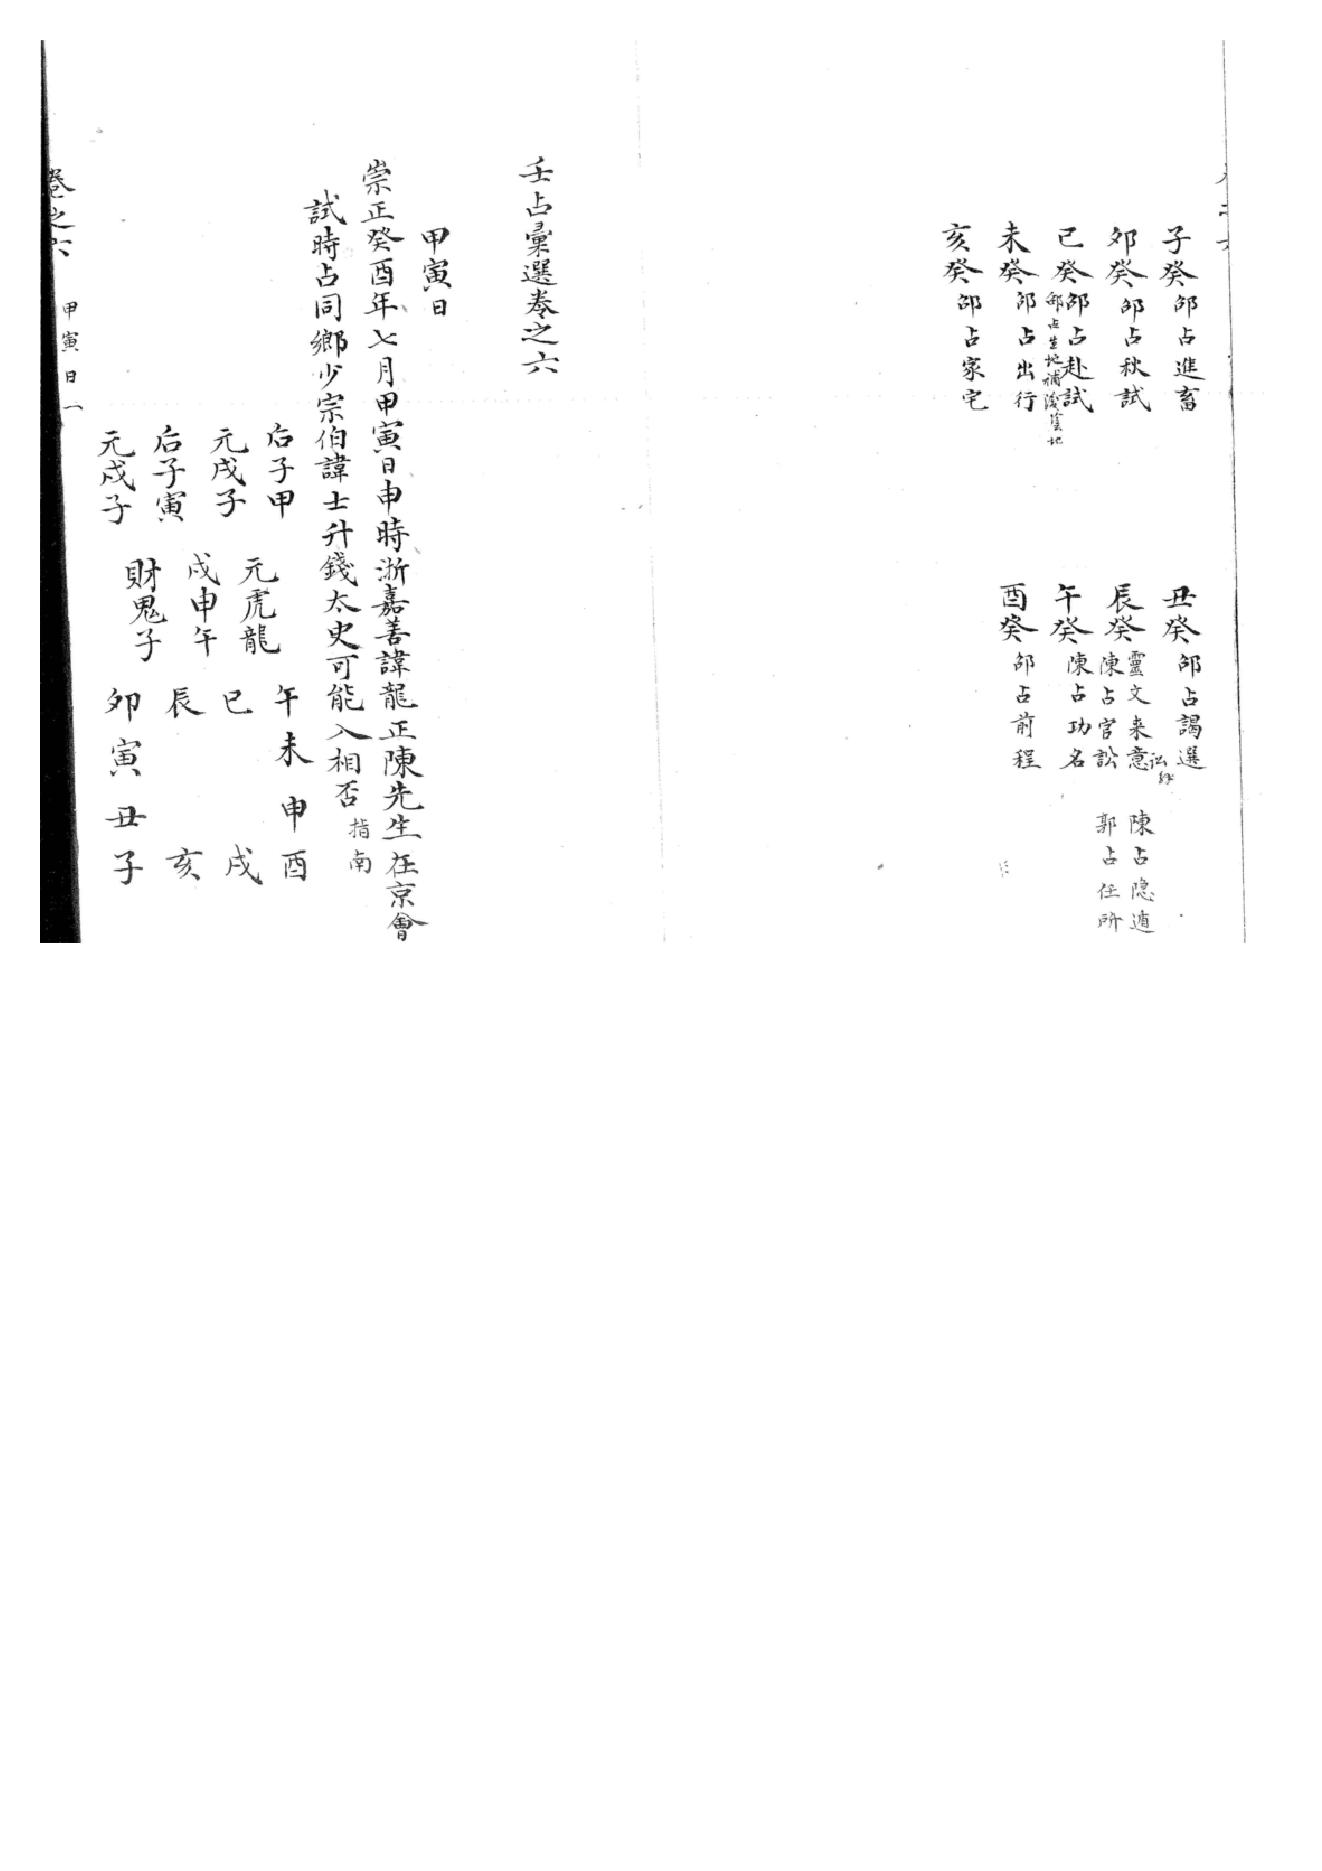 子癸 邵占進畜
丑癸 邵占謁選
卯癸 邵占秋試
辰癸 靈文来意 陳占隐遁
陳占官訟 郭占任所
巳癸 邵占赴試
邵占生地補後
午癸 陳占功名
未癸 邵占出行
酉癸 邵占前程
亥癸 邵占家宅
壬占彙選卷之六
甲寅日
崇正癸酉年七月甲寅日申時浙嘉善諱龍正陳先生在京會
試時占同鄉少宗伯諱士升錢太史可能入相否 指南
后子甲
元戌子
后子寅
元戌子
元虎龍
戌申午
財鬼子
午未申酉
巳 戌
辰 亥
卯寅丑子
卷之六 甲寅日 一